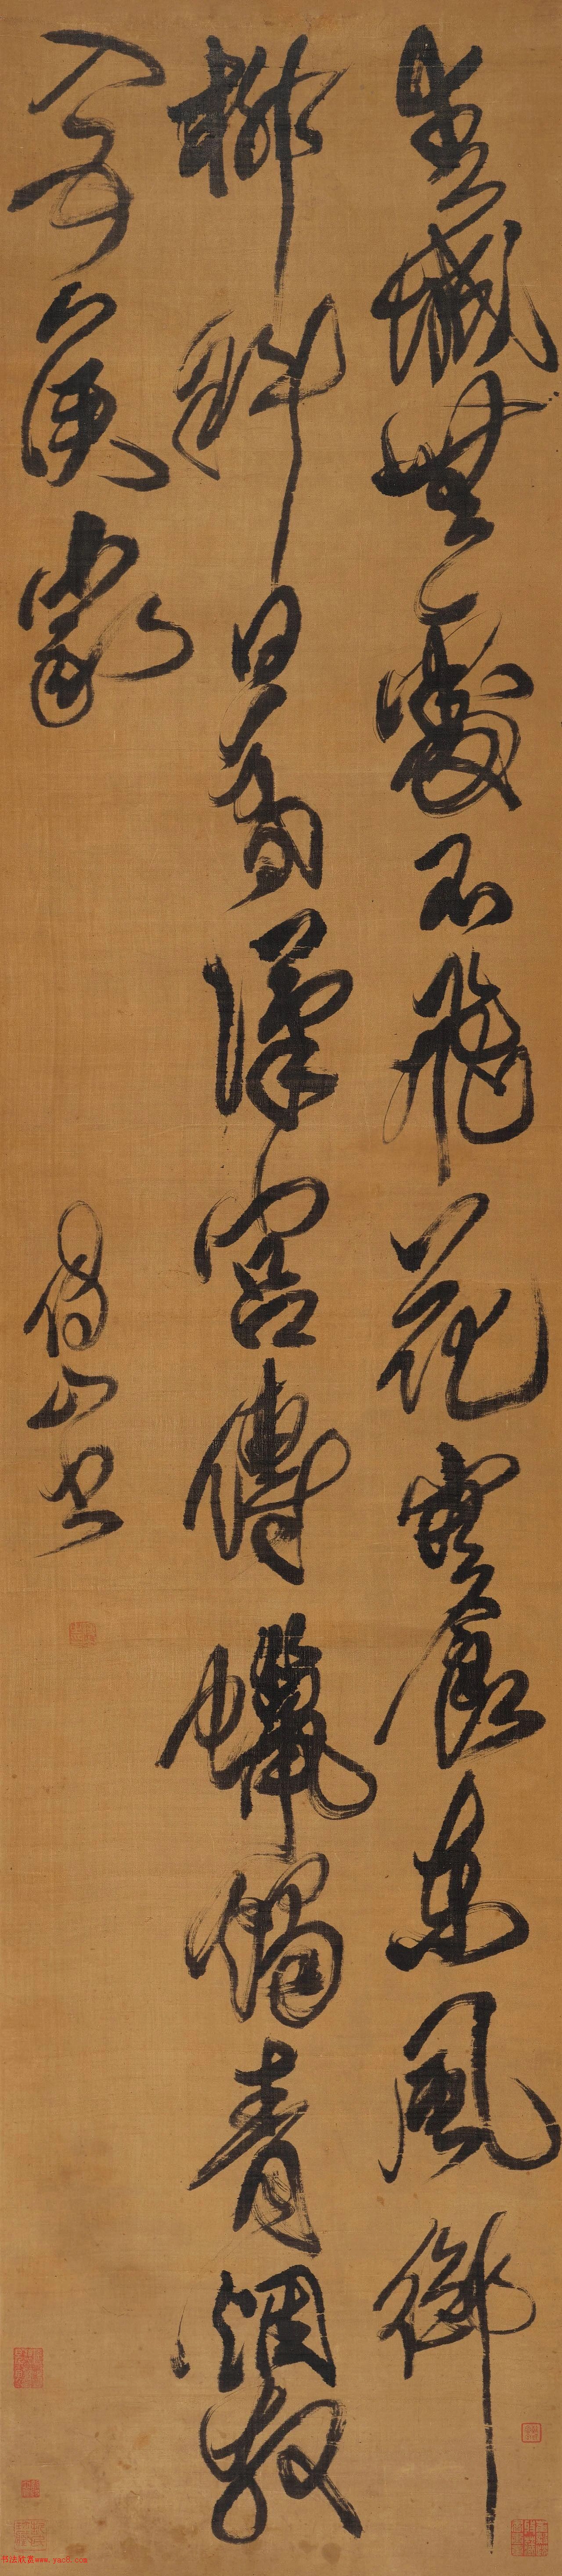 春城無處不飛花寒食東風御
柳斜日暮漢宮傳蠟燭青烟散
入五侯家
傅山書
书法欣赏www.yac8.com